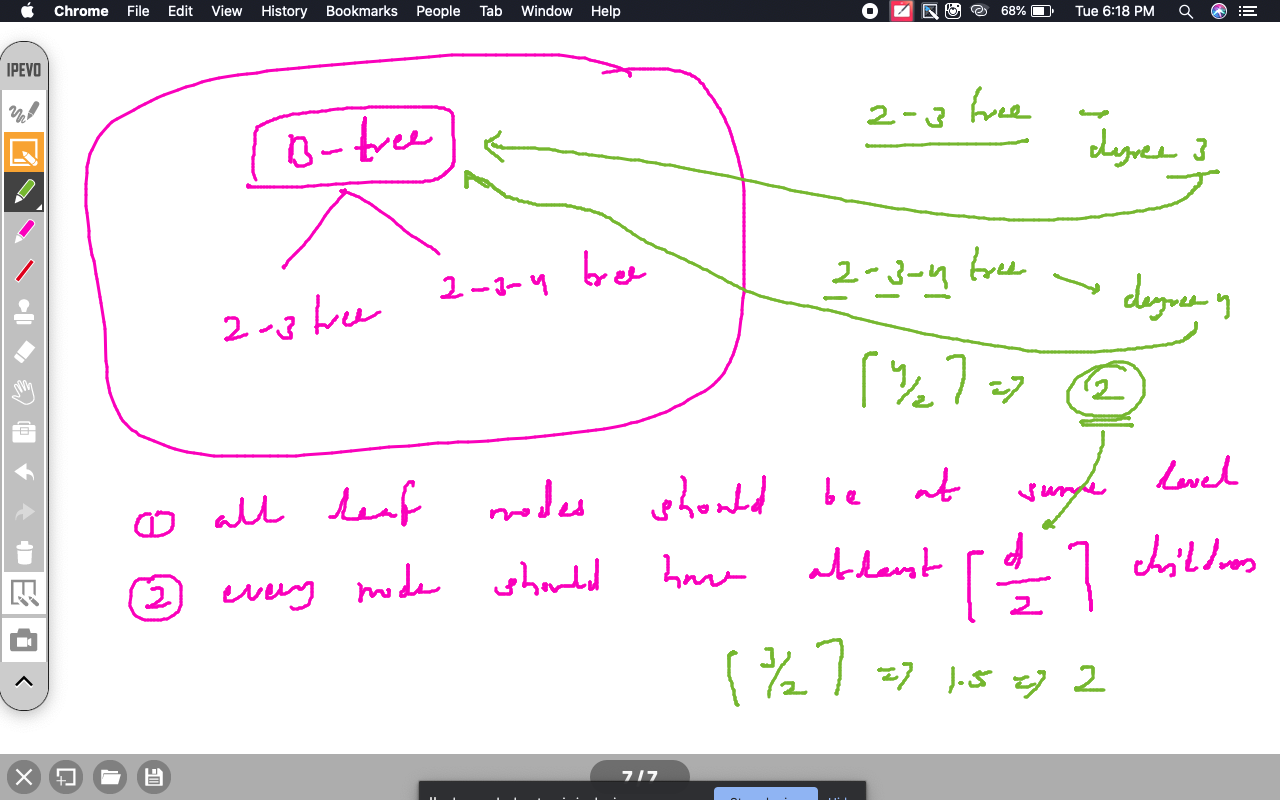 Chrome File Edit View History Bookmarks People Tab Window Help 68% Tue 6:18 PM
IPEVO
B-tree
2-3 tree
2-3-4 tree
2-3 tree → degree 3
2-3-4 tree → degree 4
⌈4/2⌉ => 2
① all leaf nodes should be at same level
② every node should have atleast ⌈d/2⌉ children
⌈3/2⌉ => 1.5 => 2
7/7